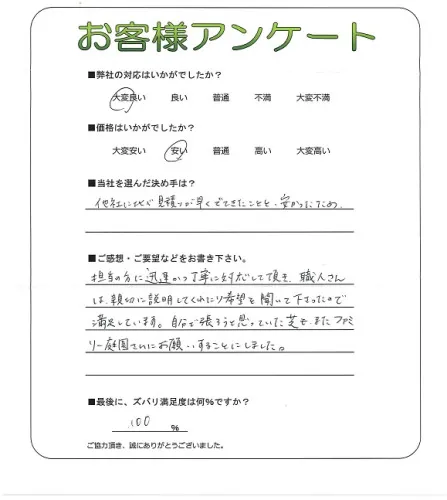 お客様アンケート
■弊社の対応はいかがでしたか？
大変良い 良い 普通 不満 大変不満
■価格はいかがでしたか？
大変安い 安い 普通 高い 大変高い
■当社を選んだ決め手は？
他社に比べ見積りが早くできたことと、安かったため
■ご感想・ご要望などをお書き下さい。
担当の方に迅速かつ丁寧に対応して頂き、職人さん
は親切に説明してくれたり希望を聞いて下さったので
満足しています。自分で張ろうと思っていた芝も、またファミ
リー庭園さんにお願いすることにしました。
■最後に、ズバリ満足度は何％ですか？
100 %
ご協力頂き、誠にありがとうございました。